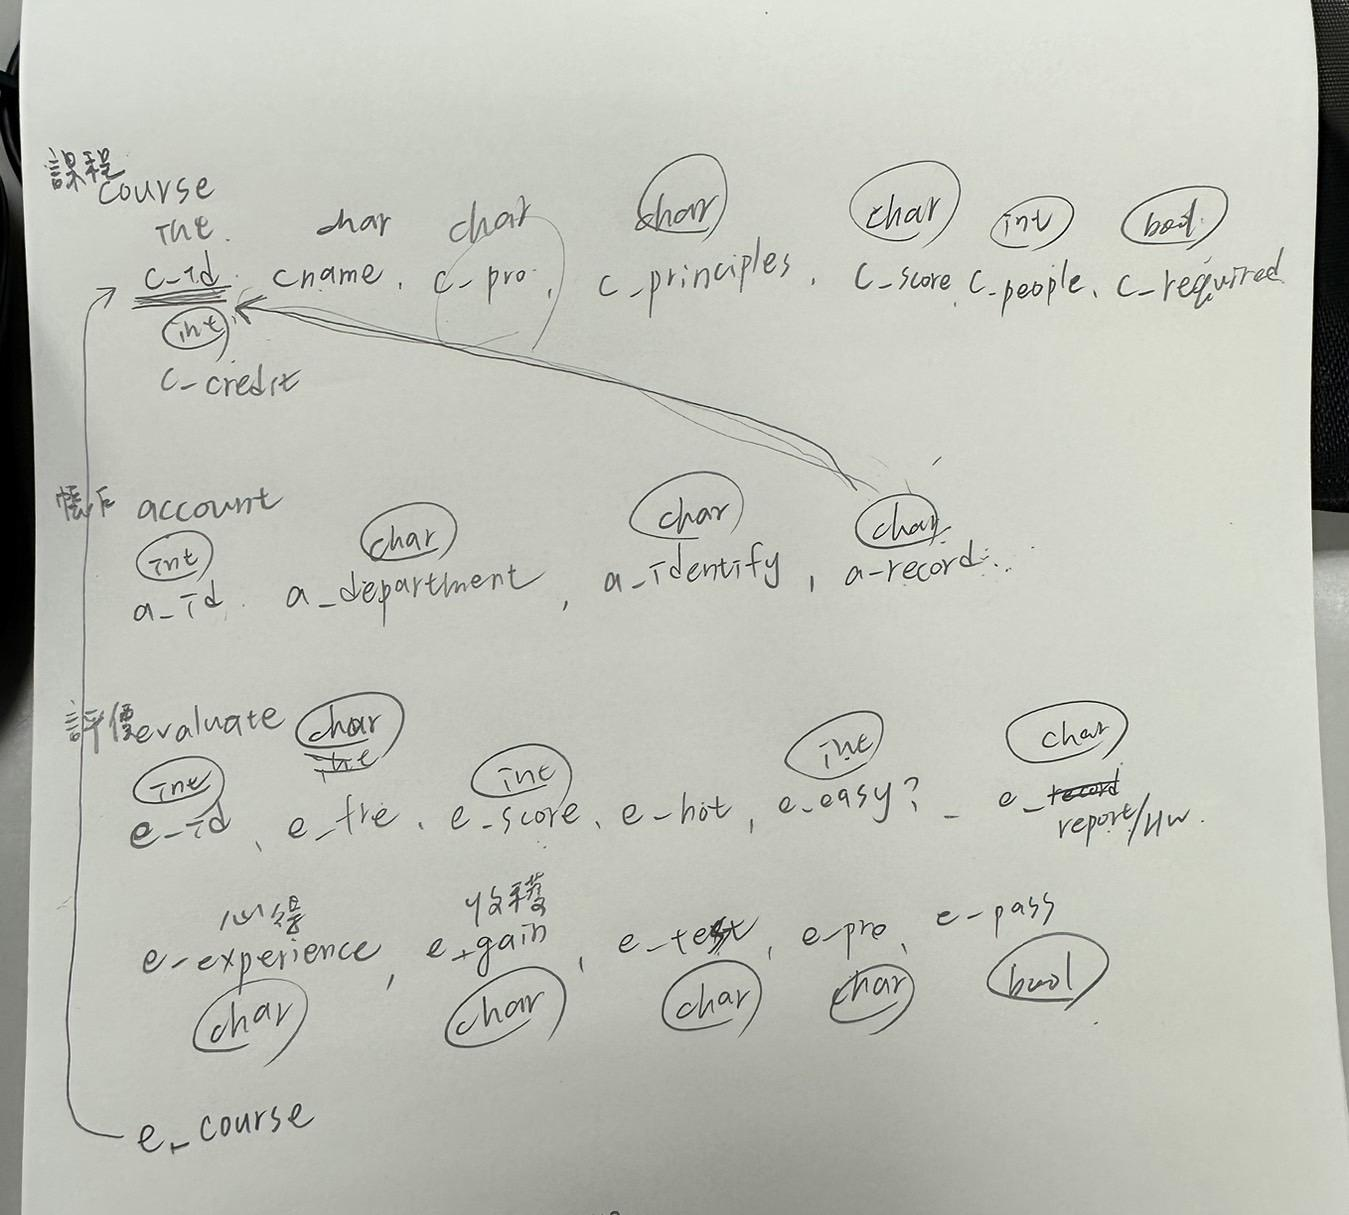 課程
course
int char char char char int bool
c_id, cname, c_pro, c_principles, c_score, c_people, c_required
int
c-credit
帳戶 account
int char char char
a_id, a_department, a_identify, a-record
評價 evaluate char
int int int int char
e_id, e_fre, e_score, e_hot, e_easy? e_record
report/HW
心得 收穫
e-experience, e_gain, e_test, e_pro, e-pass
char char char char bool
e_course